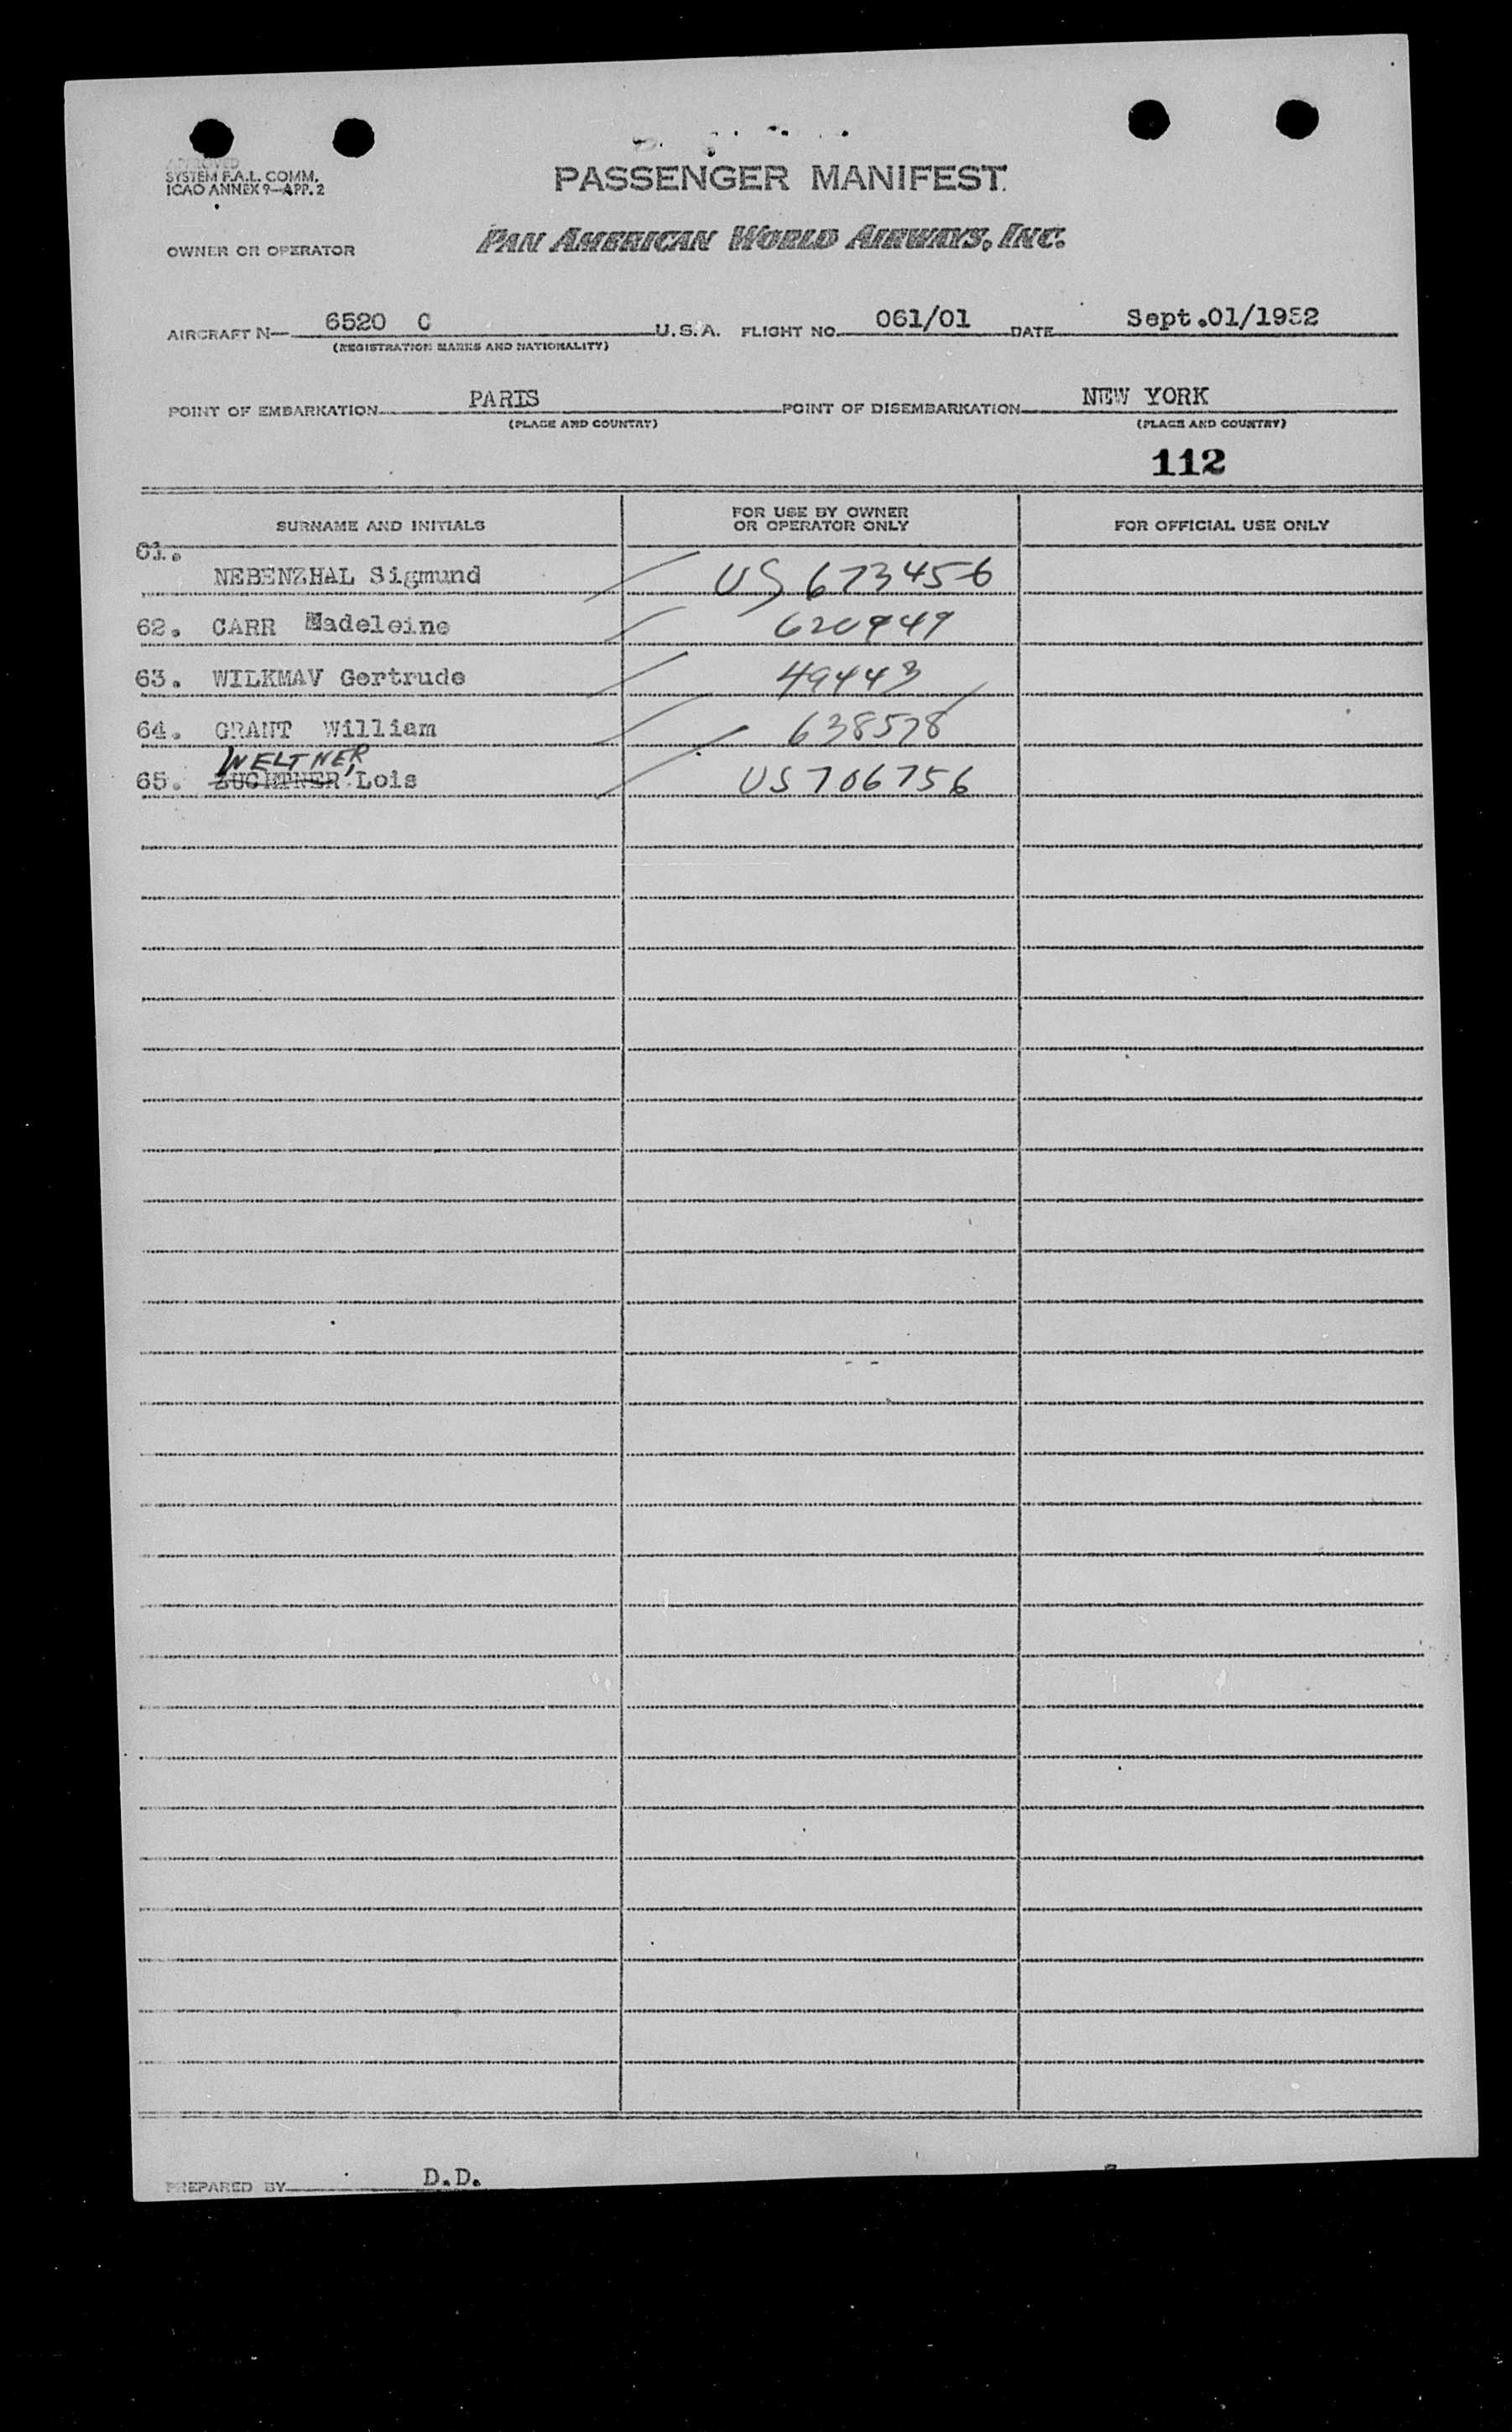 APPROVED
SYSTEM F.A.L. COMM.
ICAO ANNEX 9—APP. 2
PASSENGER MANIFEST
OWNER OR OPERATOR
PAN AMERICAN WORLD AIRWAYS, INC.
AIRCRAFT N— 6520 C U.S.A. FLIGHT NO. 061/01 DATE Sept.01/1952
(REGISTRATION MARKS AND NATIONALITY)
POINT OF EMBARKATION PARIS POINT OF DISEMBARKATION NEW YORK
(PLACE AND COUNTRY) (PLACE AND COUNTRY)
112
SURNAME AND INITIALS FOR USE BY OWNER OR OPERATOR ONLY FOR OFFICIAL USE ONLY
61.
NEBENZHAL Sigmund US 673456
62. CARR Madeleine 620949
63. WILKMAV Gertrude 49443
64. GRANT William 638578
WELTNER,
65. Lois US 706756
PREPARED BY D.D.